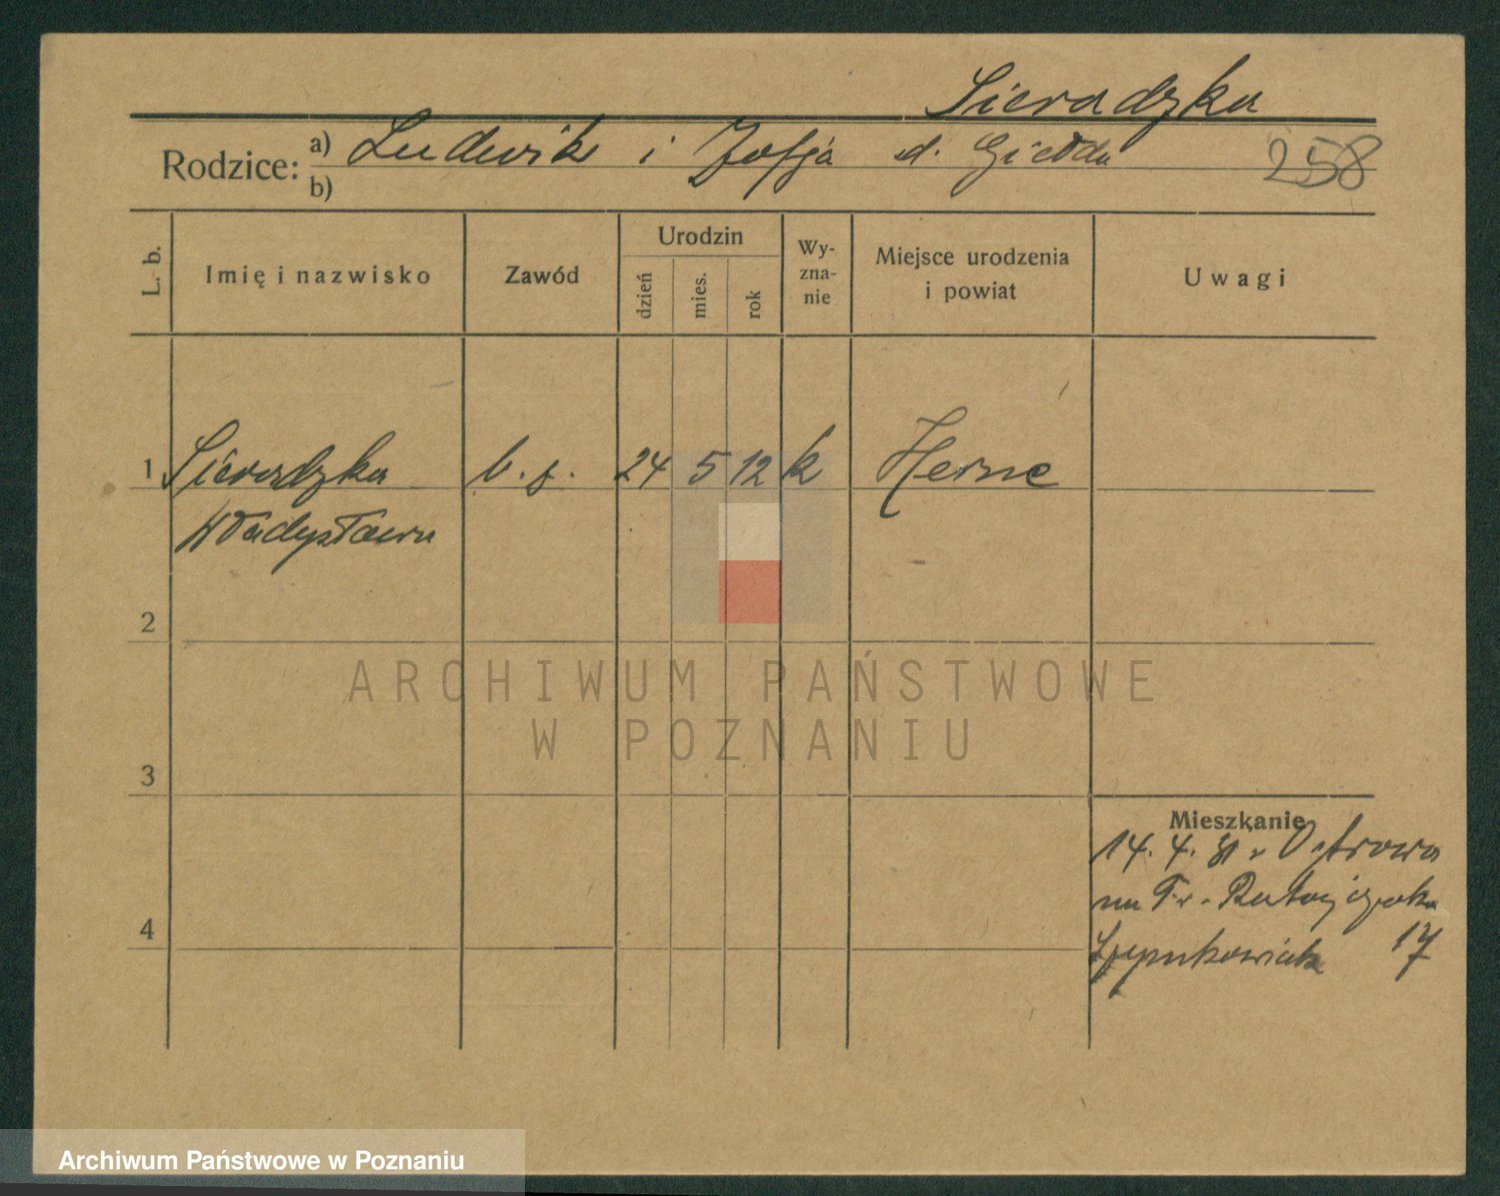 Sieradzka
Rodzice: a) Ludwik i Zofja d. Giełda
258
b)
L. b.
Imię i nazwisko
Zawód
Urodzin
dzień
mies.
rok
Wy-
zna-
nie
Miejsce urodzenia
i powiat
Uwagi
1 Sieradzka b. z. 24 5 12 k Herne
Władysława
2
ARCHIWUM PAŃSTWOWE
W POZNANIU
3
Mieszkanie
14. 4. 31 z Ostrowa
na Fr. Ratajczaka
4
17
Archiwum Państwowe w Poznaniu